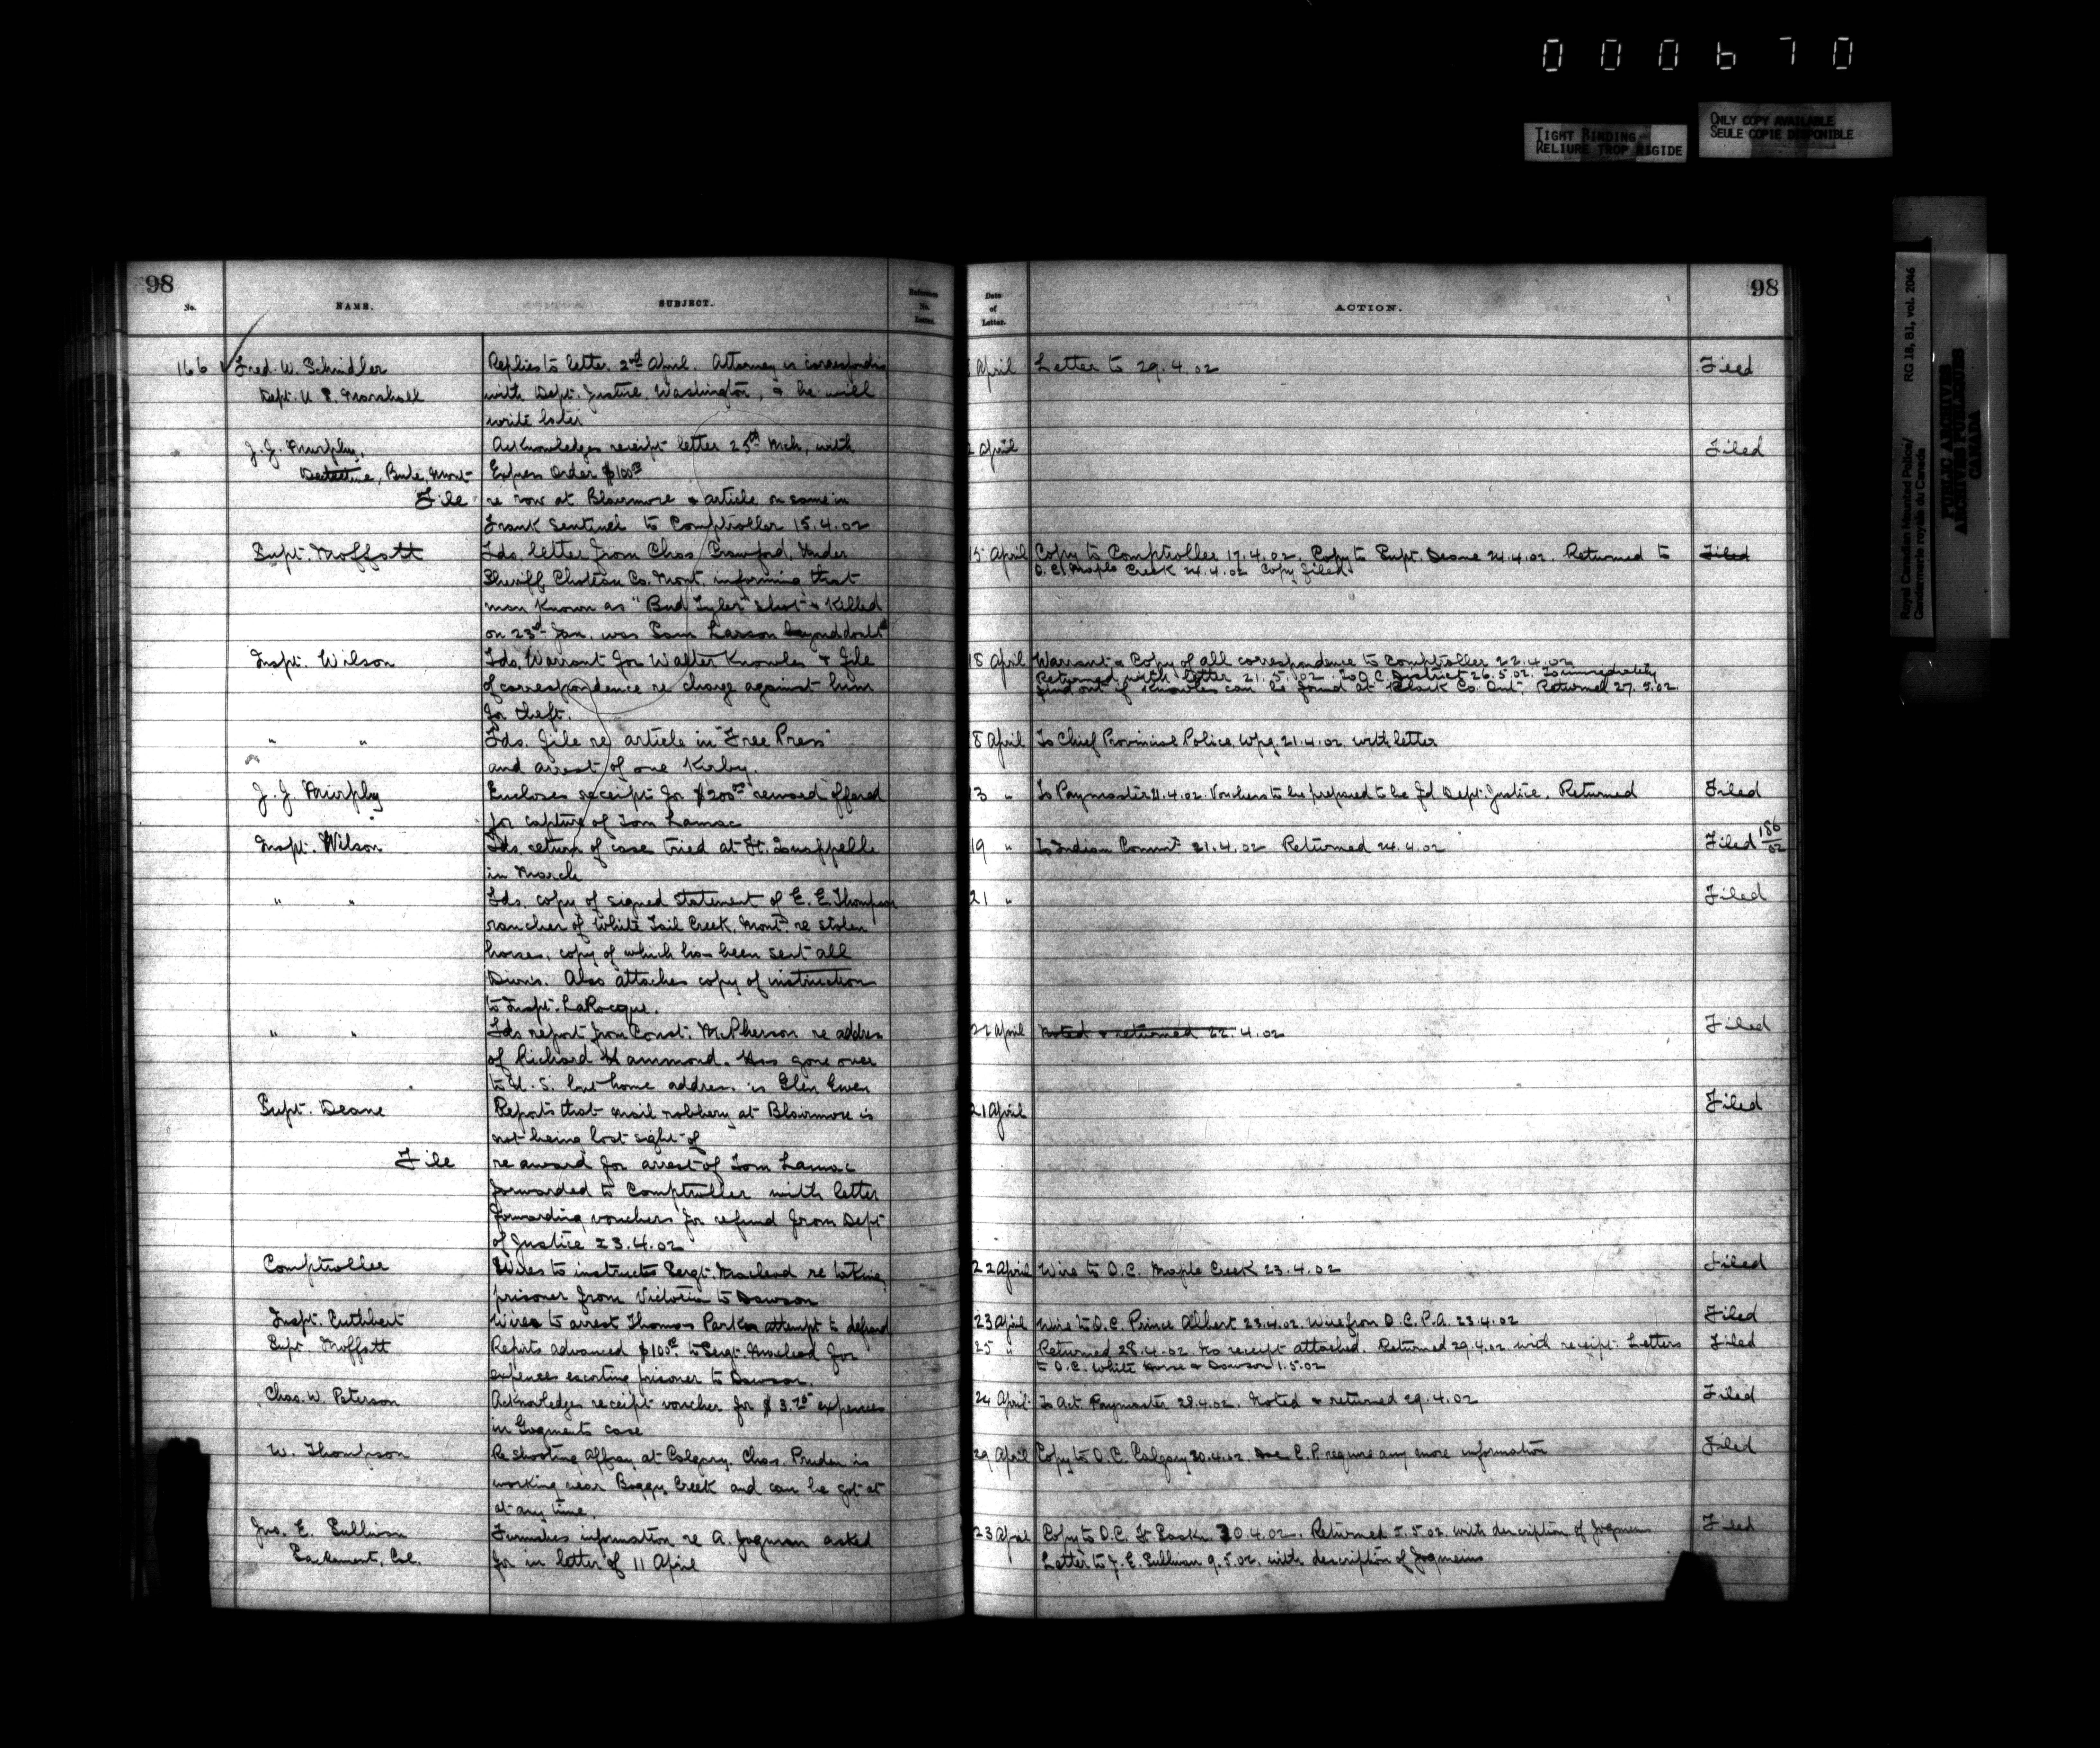 000670
TIGHT BINDING
RELIURE TROP RIGIDE
ONLY COPY AVAILABLE
SEULE COPIE DISPONIBLE
Royal Canadian Mounted Police/
Gendarmerie royale du Canada
RG 18, B1, vol. 2046
PUBLIC ARCHIVES
ARCHIVES PUBLIQUES
CANADA
98
No.
NAME.
SUBJECT.
Reference
No.
Letter.
166 Fred. W. Schindler
Dept. U. S. Marshall
Replies to letter 2nd April. Attorney is correspondin
with Dept. Justice, Washington, & he will
write later
J. J. Murphy,
Detective, Butte, Mont
Acknowledges receipt letter 25th Mch, with
Express Order $100.00
File
re row at Blairmore & article on same in
Frank Sentinel to Comptroller 15.4.02
Supt. Moffatt
Fds. letter from Chas Crawford, Under
Sheriff Choteau Co. Mont. informing that
man known as "Bud Tyler" shot & killed
on 23rd Jan. was Sam Larson beyond doubt
Inspt. Wilson
Fds. Warrant for Walter Knowles & file
of correspondence re charge against him
for theft.
" "
Fds. file re article in "Free Press"
and arrest of one Kirby.
J. J. Murphy
Encloses receipt for $200.00 reward offered
for capture of Tom Lamac
Inspt. Wilson
Fds. return of case tried at Ft. Qu'appelle
in March
" "
Fds. copy of signed statement of E. E. Thompson
rancher of White Tail Creek, Mont. re stolen
horses, copy of which has been sent all
Divns. Also attaches copy of instruction
to Inspt. LaRocque.
" "
Fds report from Const. McPherson re address
of Richard Hammond. Has gone over
to U.S. but home address is Glen Ewen
Supt. Deane
Reports that mail robbery at Blairmore is
not being lost sight of
File
re award for arrest of Tom Lamac
forwarded to Comptroller with letter
forwarding vouchers for refund from Dept
of Justice 23.4.02
Comptroller
Wires to instructs Sergt. Macleod re taking
prisoner from Victoria to Dawson
Inspt. Cuthbert
Wires to arrest Thomas Parker attempt to defraud
Supt. Moffatt
Reports advanced $100.00 to Sergt. Macleod for
expences escorting prisoner to Dawson.
Chas. W. Peterson
Acknowledges receipt voucher for $3.75 expences
in case
W. Thompson
Re shooting affray at Calgary. Chas. Pruden is
working near Boggy Creek and can be got at
at any time.
Jno. E. Sullivan
Sacrament, Cal.
Furnishes information re A. Jogman asked
for in letter of 11 April
Date
of
Letter.
ACTION.
98
April Letter to 29.4.02 Filed
2 April Filed
15 April Copy to Comptroller 17.4.02. Copy to Supt. Deane 24.4.02. Returned to Filed
O.C. Maple Creek 24.4.02 Copy filed.
18 April Warrant & Copy of all correspondence to Comptroller 22.4.02
Returned with letter 21.5.02. To O.C. District 26.5.02. To immediately
find out if Knowles can be found at Black Co. Ont. Returned 27.5.02
8 April To Chief Provincial Police, Wpg. 21.4.02 with letter
13 " To Paymaster 21.4.02. Vouchers to be prepared to be fd. Dept. Justice. Returned Filed
19 " To Indian Commr. 21.4.02 Returned 24.4.02 Filed 186/02
21 " Filed
22 April Noted & returned 22.4.02 Filed
21 April Filed
22 April Wire to O.C. Maple Creek 23.4.02 Filed
23 April Wire to O.C. Prince Albert 23.4.02. Wire from O.C. P.A. 23.4.02 Filed
25 " Returned 28.4.02. No receipt attached. Returned 29.4.02 with receipt. Letters Filed
to O.C. White Horse & Dawson 1.5.02
24 April To Act. Paymaster 28.4.02. Noted & returned 29.4.02 Filed
29 April Copy to O.C. Calgary 30.4.02. Does C.P. require any more information Filed
23 April Copy to O.C. Ft Sask. 30.4.02. Returned 5.5.02 with description of Filed
Letter to J. E. Sullivan 9.5.02. with description of